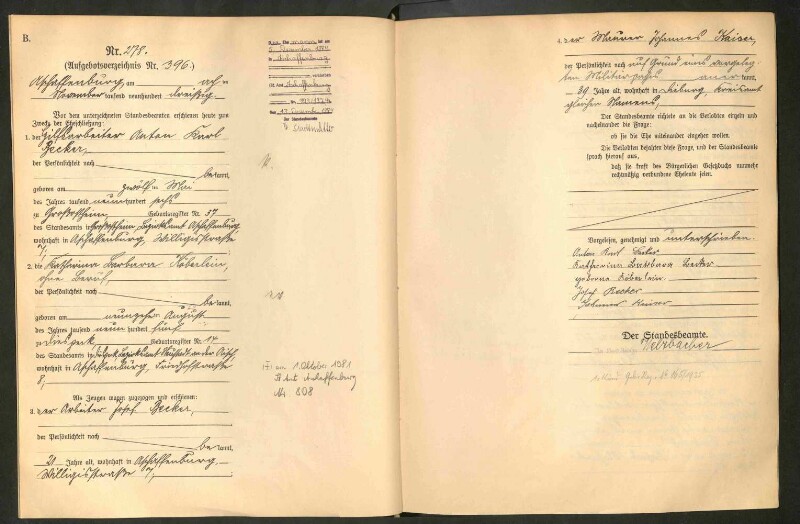 B.
Nr. 278.
(Aufgebotsverzeichnis Nr. 396.)
Aschaffenburg am acht
November tausend neunhundert dreißig
Vor dem unterzeichneten Standesbeamten erschienen heute zum
Zweck der Eheschließung:
1. der Hilfsarbeiter Anton Karl
Becker,
der Persönlichkeit nach
bekannt,
geboren am zwölften Mai
des Jahres tausend neunhundert sechs
zu Großostheim, Geburtsregister Nr. 37
des Standesamts in Großostheim, Bezirksamt Aschaffenburg
wohnhaft in Aschaffenburg, Willigisstraße
7,
2. die Katharina Barbara Köberlein,
ohne Beruf,
der Persönlichkeit nach
bekannt,
geboren am neunzehn August
des Jahres tausend neunhundert fünf
zu Diespeck, Geburtsregister Nr. 14
des Standesamts in Diespeck, Bezirksamt Neustadt an der Aisch,
wohnhaft in Aschaffenburg, Friedhofstraße
8,
Als Zeugen waren zugezogen und erschienen:
3. der Arbeiter Josef Becker,
der Persönlichkeit nach
bekannt,
Jahre alt, wohnhaft in Aschaffenburg,
Willigisstraße 7,
Aschaffenburg
Der Standesbeamte
am 1. Oktober 1981
St. Amt Aschaffenburg
Nr. 808
4. der Maurer Johannes Kaiser,
der Persönlichkeit nach auf Grund
Militärpass anerkannt,
39 Jahre alt, wohnhaft in
gleichen Namens,
Der Standesbeamte richtete an die Verlobten einzeln und
nacheinander die Frage:
ob sie die Ehe miteinander eingehen wollen.
Die Verlobten bejahten diese Frage, und der Standesbeamte
sprach hierauf aus,
daß sie kraft des Bürgerlichen Gesetzbuchs nunmehr
rechtmäßig verbundene Eheleute seien.
Vorgelesen, genehmigt und unterschrieben.
Anton Karl Becker
Katharina Barbara Becker
geborene Köberlein.
Josef Becker
Johannes Kaiser
Der Standesbeamte.
Welzbacher